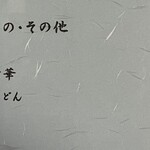 の・その他
華
どん